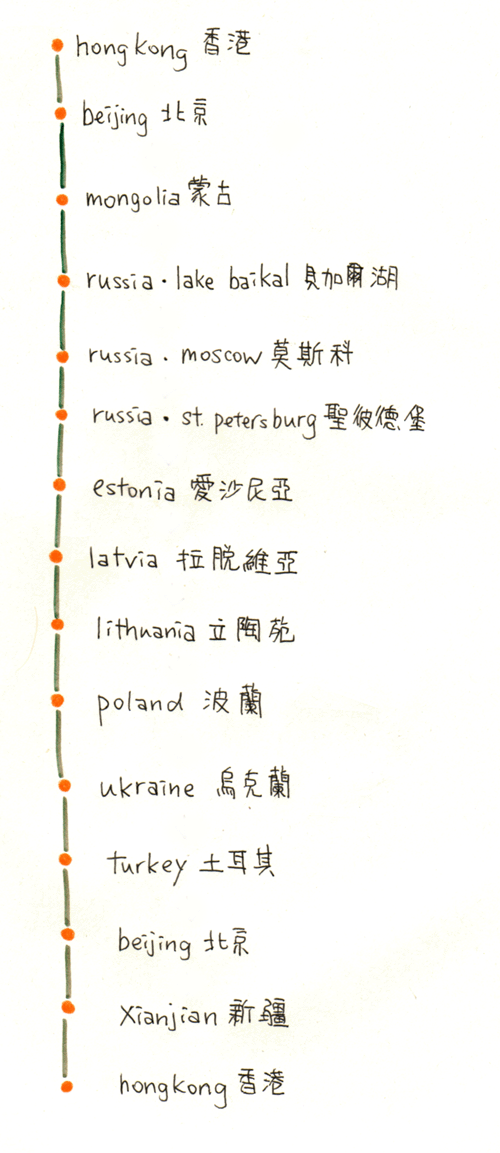 hongkong 香港
beijing 北京
mongolia 蒙古
russia · lake baikal 貝加爾湖
russia · moscow 莫斯科
russia · st. petersburg 聖彼德堡
estonia 愛沙尼亞
latvia 拉脫維亞
lithuania 立陶苑
poland 波蘭
ukraine 烏克蘭
turkey 土耳其
beijing 北京
Xianjian 新疆
hongkong 香港